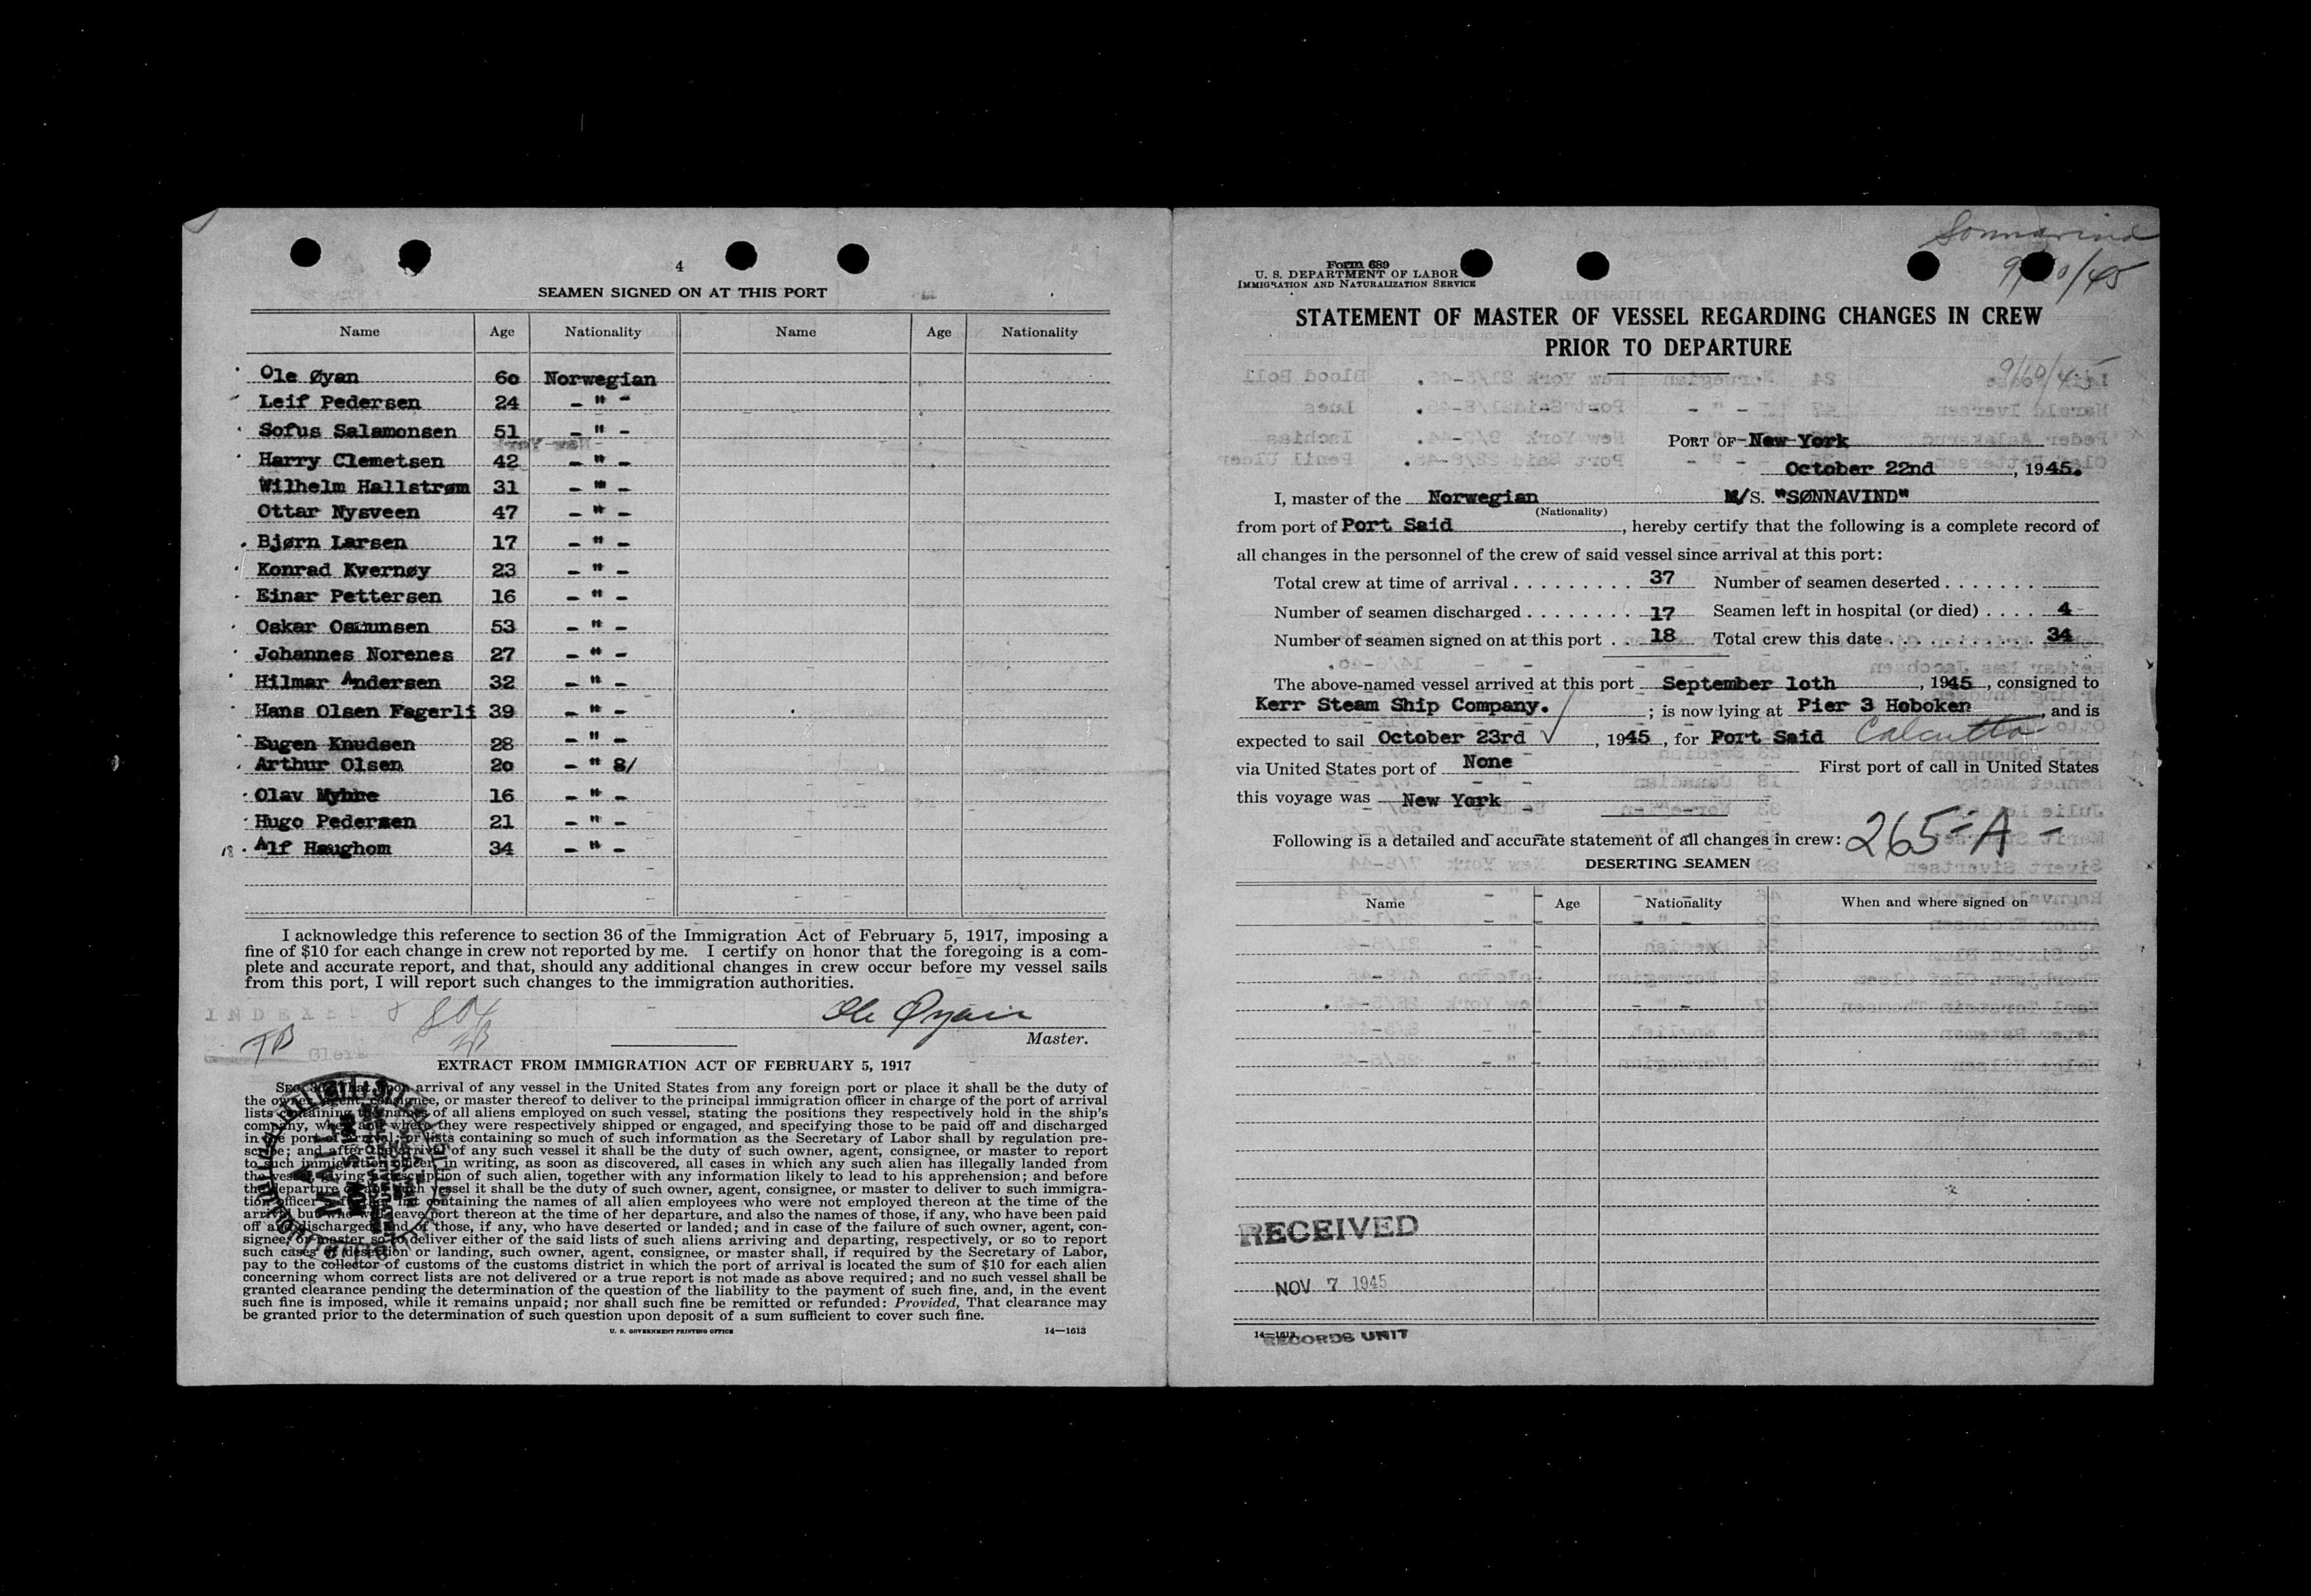 4
SEAMEN SIGNED ON AT THIS PORT
Name Age Nationality Name Age Nationality
Ole Øyan 60 Norwegian
Leif Pedersen 24 - " -
Sofus Salamonsen 51 - " -
Harry Clemetsen 42 - " -
Wilhelm Hallstrøm 31 - " -
Ottar Nysveen 47 - " -
Bjørn Larsen 17 - " -
Konrad Kvernøy 23 - " -
Einar Pettersen 16 - " -
Oskar Osmunsen 53 - " -
Johannes Norenes 27 - " -
Hilmar Andersen 32 - " -
Hans Olsen Fagerli 39 - " -
Eugen Knudsen 28 - " -
Arthur Olsen 20 - " 8/
Olav Myhre 16 - " -
Hugo Pedersen 21 - " -
18 Alf Haughom 34 - " -
I acknowledge this reference to section 36 of the Immigration Act of February 5, 1917, imposing a
fine of $10 for each change in crew not reported by me. I certify on honor that the foregoing is a com-
plete and accurate report, and that, should any additional changes in crew occur before my vessel sails
from this port, I will report such changes to the immigration authorities.
Ole Øyan
Master.
INDEXED
Clerk
EXTRACT FROM IMMIGRATION ACT OF FEBRUARY 5, 1917
SEC. 36. That upon arrival of any vessel in the United States from any foreign port or place it shall be the duty of
the owner, agent, consignee, or master thereof to deliver to the principal immigration officer in charge of the port of arrival
lists containing the names of all aliens employed on such vessel, stating the positions they respectively hold in the ship's
company, when and where they were respectively shipped or engaged, and specifying those to be paid off and discharged
in the port of arrival; or lists containing so much of such information as the Secretary of Labor shall by regulation pre-
scribe; and after the arrival of any such vessel it shall be the duty of such owner, agent, consignee, or master to report
to such immigration officer, in writing, as soon as discovered, all cases in which any such alien has illegally landed from
the vessel, giving a description of such alien, together with any information likely to lead to his apprehension; and before
the departure of any such vessel it shall be the duty of such owner, agent, consignee, or master to deliver to such immigra-
tion officer a further list containing the names of all alien employees who were not employed thereon at the time of the
arrival but who will leave port thereon at the time of her departure, and also the names of those, if any, who have been paid
off and discharged, and of those, if any, who have deserted or landed; and in case of the failure of such owner, agent, con-
signee, or master so to deliver either of the said lists of such aliens arriving and departing, respectively, or so to report
such cases of desertion or landing, such owner, agent, consignee, or master shall, if required by the Secretary of Labor,
pay to the collector of customs of the customs district in which the port of arrival is located the sum of $10 for each alien
concerning whom correct lists are not delivered or a true report is not made as above required; and no such vessel shall be
granted clearance pending the determination of the question of the liability to the payment of such fine, and, in the event
such fine is imposed, while it remains unpaid; nor shall such fine be remitted or refunded: Provided, That clearance may
be granted prior to the determination of such question upon deposit of a sum sufficient to cover such fine.
U. S. GOVERNMENT PRINTING OFFICE 14—1613
Sonnavind
Form 689
U. S. DEPARTMENT OF LABOR
IMMIGRATION AND NATURALIZATION SERVICE
STATEMENT OF MASTER OF VESSEL REGARDING CHANGES IN CREW
PRIOR TO DEPARTURE
9/10/45
PORT OF New York
October 22nd, 1945.
I, master of the Norwegian M/S. "SØNNAVIND"
(Nationality)
from port of Port Said, hereby certify that the following is a complete record of
all changes in the personnel of the crew of said vessel since arrival at this port:
Total crew at time of arrival . . . . . . . . . . 37 Number of seamen deserted . . . . . . .
Number of seamen discharged . . . . . . . . 17 Seamen left in hospital (or died) . . . . 4
Number of seamen signed on at this port . . 18 Total crew this date . . . . . . . . . . 34
The above-named vessel arrived at this port September 10th, 1945, consigned to
Kerr Steam Ship Company. ; is now lying at Pier 3 Hoboken, and is
expected to sail October 23rd, 1945, for Port Said Calcutta
via United States port of None First port of call in United States
this voyage was New York
Following is a detailed and accurate statement of all changes in crew: 265-A-
DESERTING SEAMEN
Name Age Nationality When and where signed on
RECEIVED
NOV 7 1945
14—1613
RECORDS UNIT